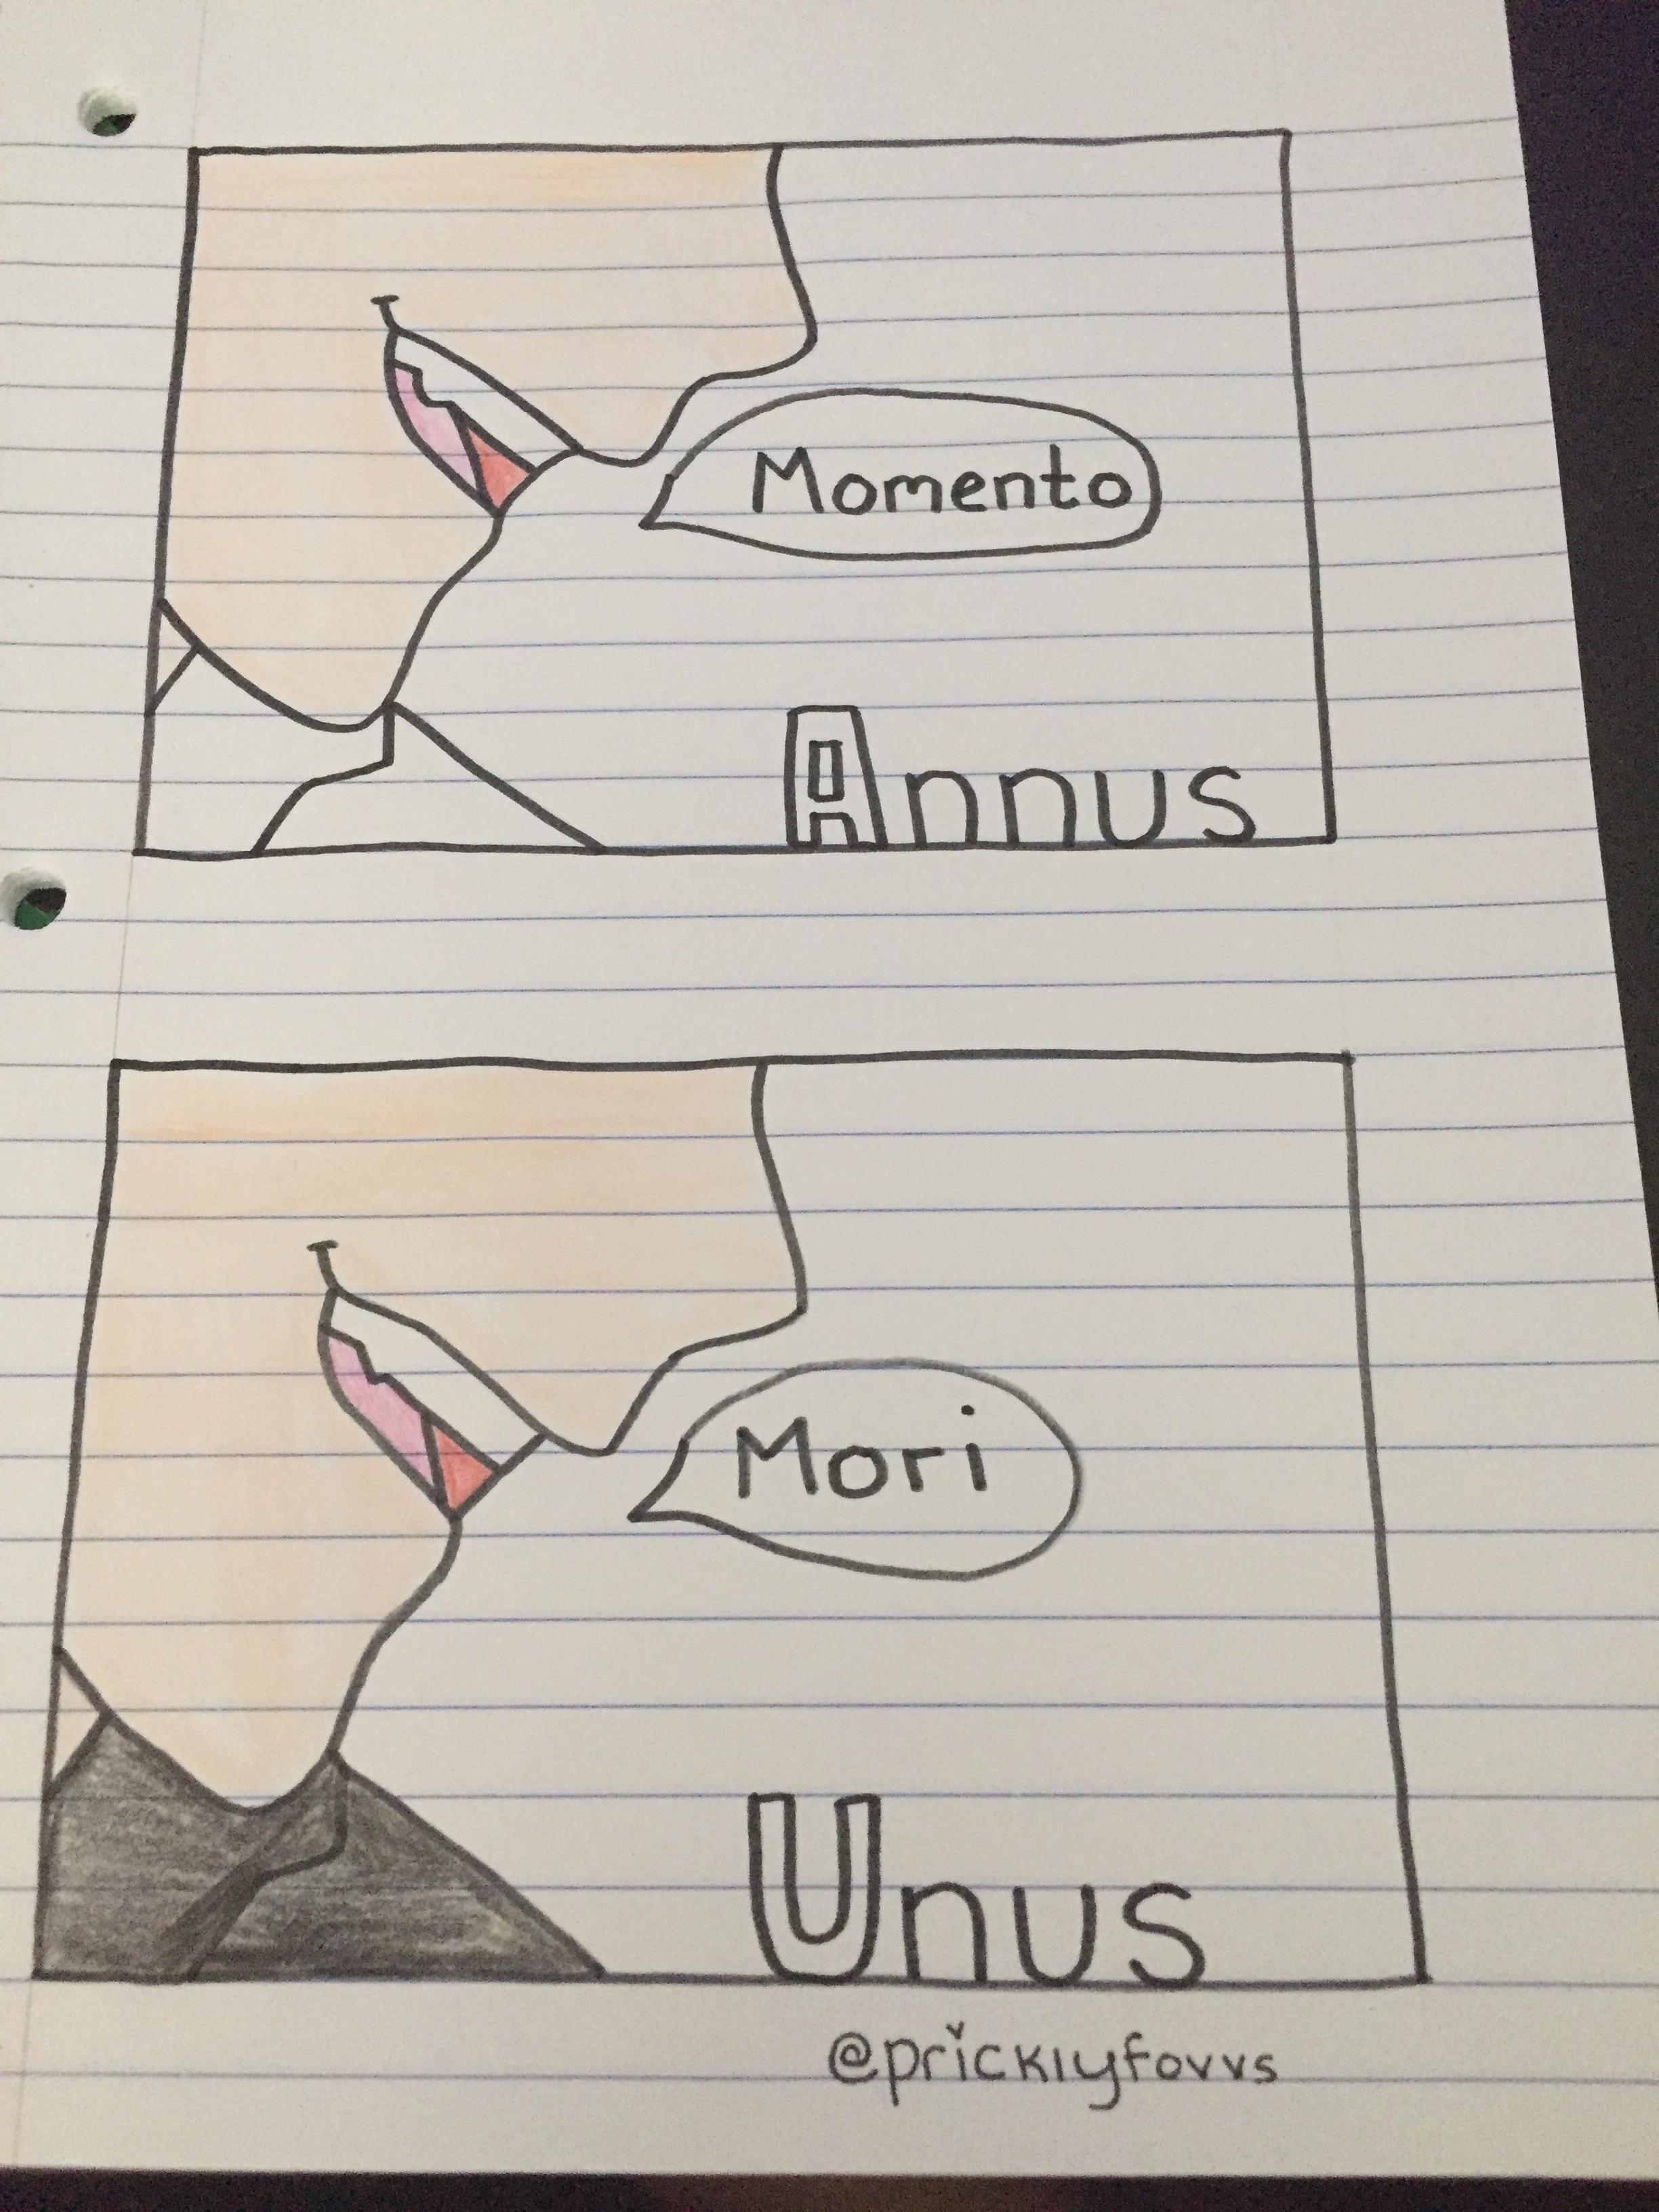 Momento
Annus
Mori
Unus
@pricklyfovvs